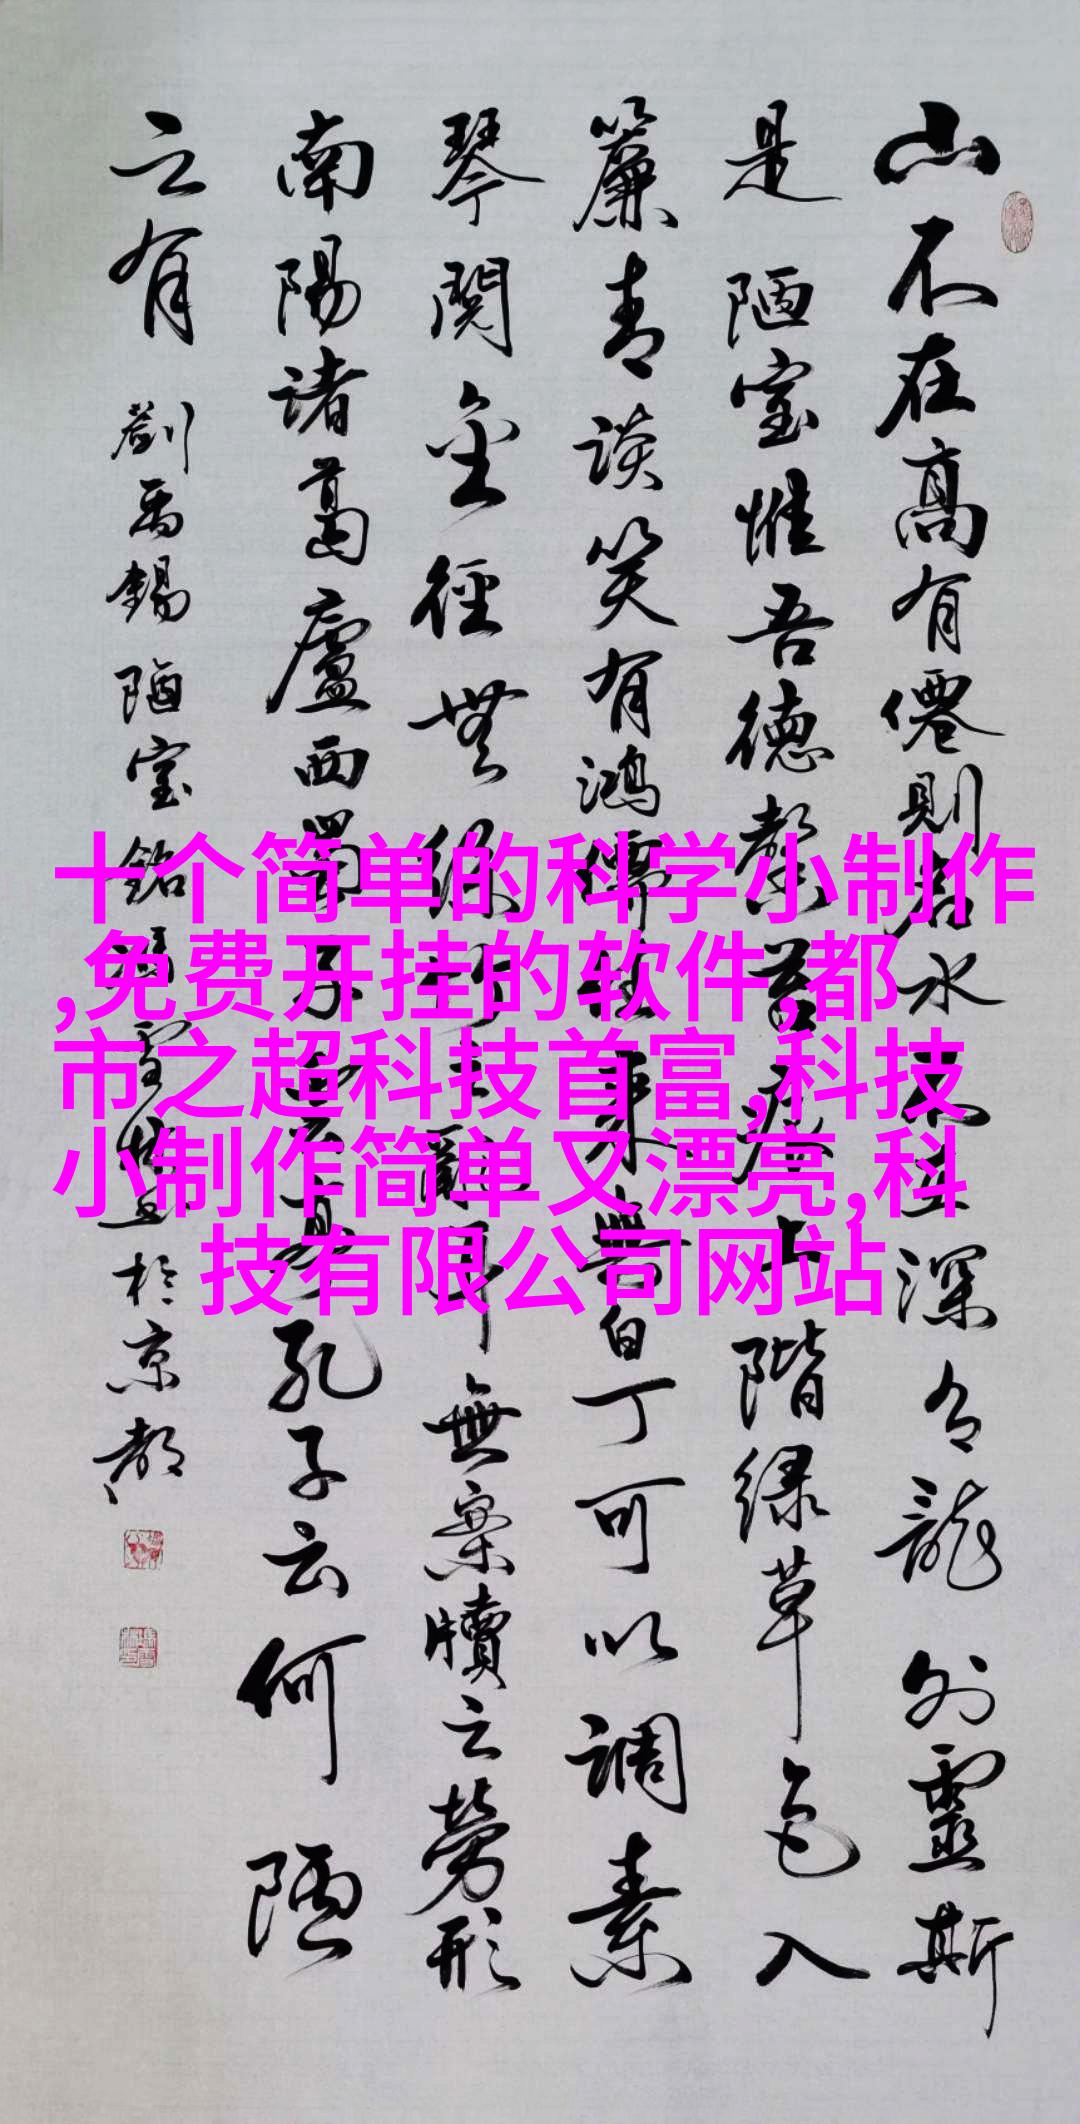 山不在高有僊則名水不在深有龍則靈斯
是陋室惟吾德馨苔痕上階绿草色入
簾青談笑有鴻儒往來無白丁可以調素
琴閱金徑無絲竹之亂耳無案牘之勞形
南陽诸葛廬西蜀子雲亭孔子云何陋
之有 劉禹錫 陋室銘 雪 於京都
十个简单的科学小制作
,免费开挂的软件,都
市之超科技首富,科技
小制作简单又漂亮,科
技有限公司网站